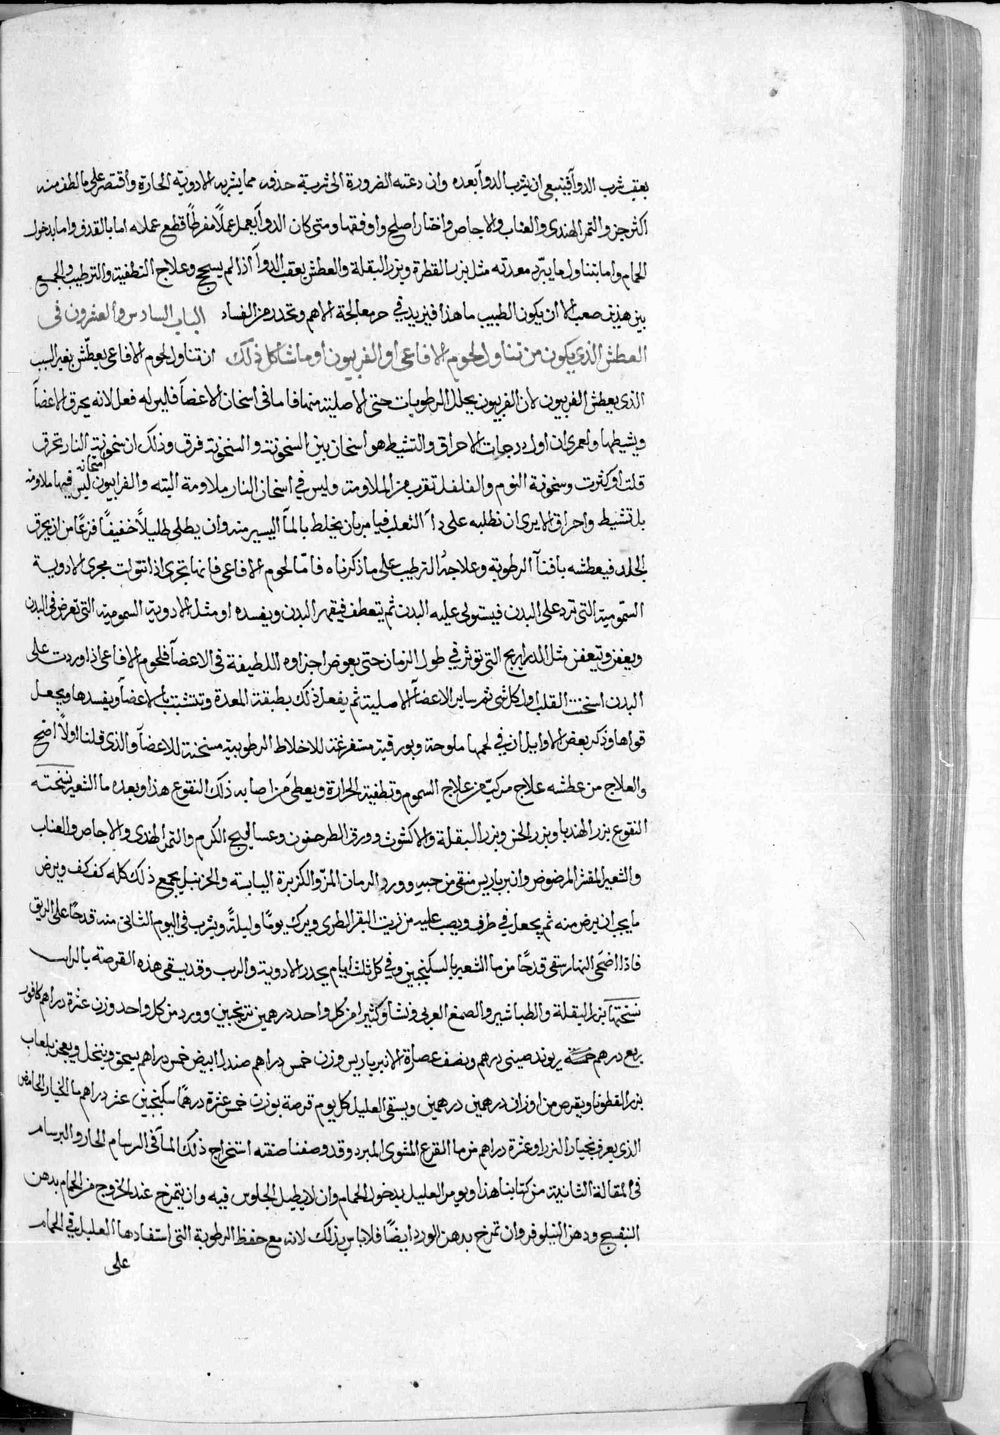 بعقب شرب الدوآ فينبغى ان يشرب الدوآ بعده وان دعته الضرورة الى شربة حذف مما يشربه الادوية الحارة واقتصر على ما لطف منه
اكثر جز والتمر الهندى والعناب والاجاص واختار اصلح واوفقها ومتى كان الدوآ يعمل عملاً مفرطاً قطع عمله اما بالقذف واما بدخول
الحمام واما بتناول ما يبرّد معدته مثل بزر القطونا وبزر البقلة والعطش بعقب الدوآ اذا لم يسحج وعلاج التطفية والترطيب والجمع
بين هذين صعب الا ان يكون الطبيب ماهذا فيزيد فى معالجة الاهم وتحذر من الفساد الباب السادس والعشرون فى
العطش الذى يكون من تناول لحوم الافاعى او الفربيون او ما شاكل ذلك ان تناول لحوم الافاعى يعطّش بغير السبب
الذى يعطش الفربيون لان الفربيون يحلل الرطوبات حتى الاصلية منها فاما فى اسخان الاعضآ فليس له فعل لانه يحرق الاعضآ
ويشيطها ولعمرى ان اول درجات الاحراق والتشيط هو اسخان بين السخونة والسخونة فرق وذلك ان سخونة النار تحرق
قلت او كثرت وسخونة الثوم والفلفل تقرب من الملاومة وليس فى اسخان النار ملاومة البته والفربيون ليس فيها ملاومة
اسخانه
بل تشيط واحراق الا يرى ان نطلبه على دآ الثعلب فيامر بان يخلط بالمآ اليسير منه وان يطلى طلياً خفيفاً فزعاً من ان يحرق
الجلد فيعطشه بافنآ الرطوبة وعلاجه الترطيب على ما ذكرناه فامّا لحوم الافاعى فانها تجرى اذا تنوولت مجرى الادوية
السمّومية التى ترد على البدن فيستولى عليه البدن ثم يتعطف فيقهر البدن ويفسده او مثل الادوية السمومية التى تعرض فى البدن
ويعفن وتيعفن مثل الذراريح التى توثر فى طول الزمان حتى يعوض اجزاوه اللطيفة فى الاعضآ فلحوم الافاعى اذا وردت على
البدن اسخنت القلب اول كل شى ثم ساير الاعضآ الاصلية ثم يفعل ذلك بطبقة المعدة وتتشبث بالاعضآ ويفسدها ويجعل
قواها وذكر بعض الاوايل ان فى لحمها ملوحة وبورقية مستفرغة للاخلاط الرطوبية مسخنة للاعضآ والذى قلنا اولاً اصح
والعلاج من عطشه علاج مركّب من علاج السموم وتطفية الحرارة ويعطى من اصابه ذلك النقوع هذا وبعده ما الشعير نسخته
النقوع بزر الهندبا وبزر الخس وبزر البقلة والاكشوث وورق الطرحشقون وعساليج الكرم والتمر الهندى والاجاص والعناب
والشعير المقشر المرضوض وانبرباريس منقى من حبه وورد الرمان المزّ والكزبرة اليابسة والخزنبل يجمع ذلك كله كف كف ويرض
ما يجب ان يرض منه ثم يجعل فى ظرف ويصب عليه من زيت البقر الطرى ويترك يوماً وليلةً ويشرب فى اليوم الثانى منه قدحاً على الريق
فاذا اضحى النهار سقى قدحاً من ما الشعير بالسكنجبين وفى كل ثلث ايام يحذر الادوية والرب وقد يسقى هذه القرصة بالراب
نسختها بزر البقلة والطباشير والصمغ العربى ونشا وكثيرا من كل واحد درهمين ترنجبين وورد من كل واحد وزن عشرة دراهم كافور
ربع درهم ريوند صينى درهم ونصف عصارة الانبرباريس وزن خمس دراهم صندل ابيض خمس دراهم يسحق وينخل ويعجن بلعاب
بزر القطونا ويقرص من اوزان درهمين درهمين ويسقى العليل كل يوم قرصة بوزن خمس عشرة درهماً سكنجبين عشر دراهم ما الخيار الحامض
الذى يعرف بخيار البزر او عشرة دراهم من ما القرع المشوى المبرد وقد وصفنا صفته استخراج ذلك المآ فى البرسام الحار والبرسام
فى المقالة الثانية من كتابنا هذا ويومر العليل بدخول الحمام وان لا يطيل الجلوس فيه وان يتمرّخ عند الخروج من الحمام بدهن
البنفسج ودهن النيلوفر وان تمرخ بدهن الورد ايضاً فلا باس بذلك لانه مع حفظ الرطوبة التى استفادها العليل فى الحمام
على